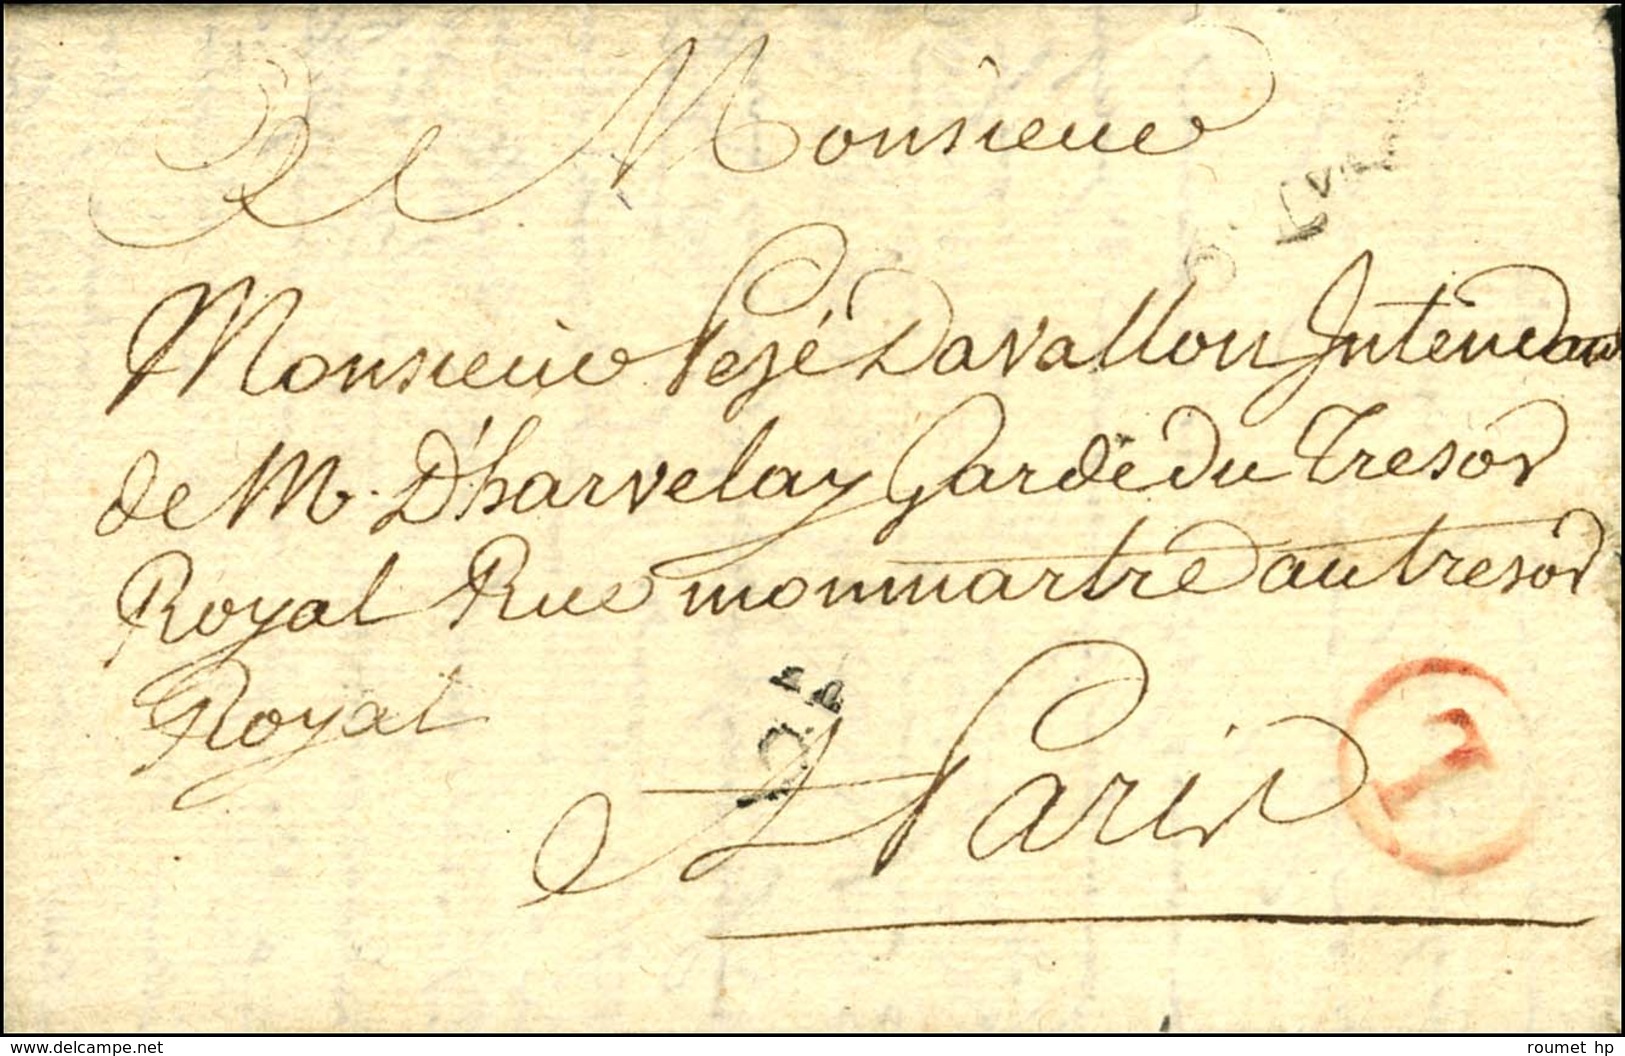 Monsieur
Monsieur Pezé Davallon Intendant
de M. D'harvelay Garde du Tresor
Royal Rue monmartre au tresor
Royal
A Paris
www.delcampe.net
roumet hp